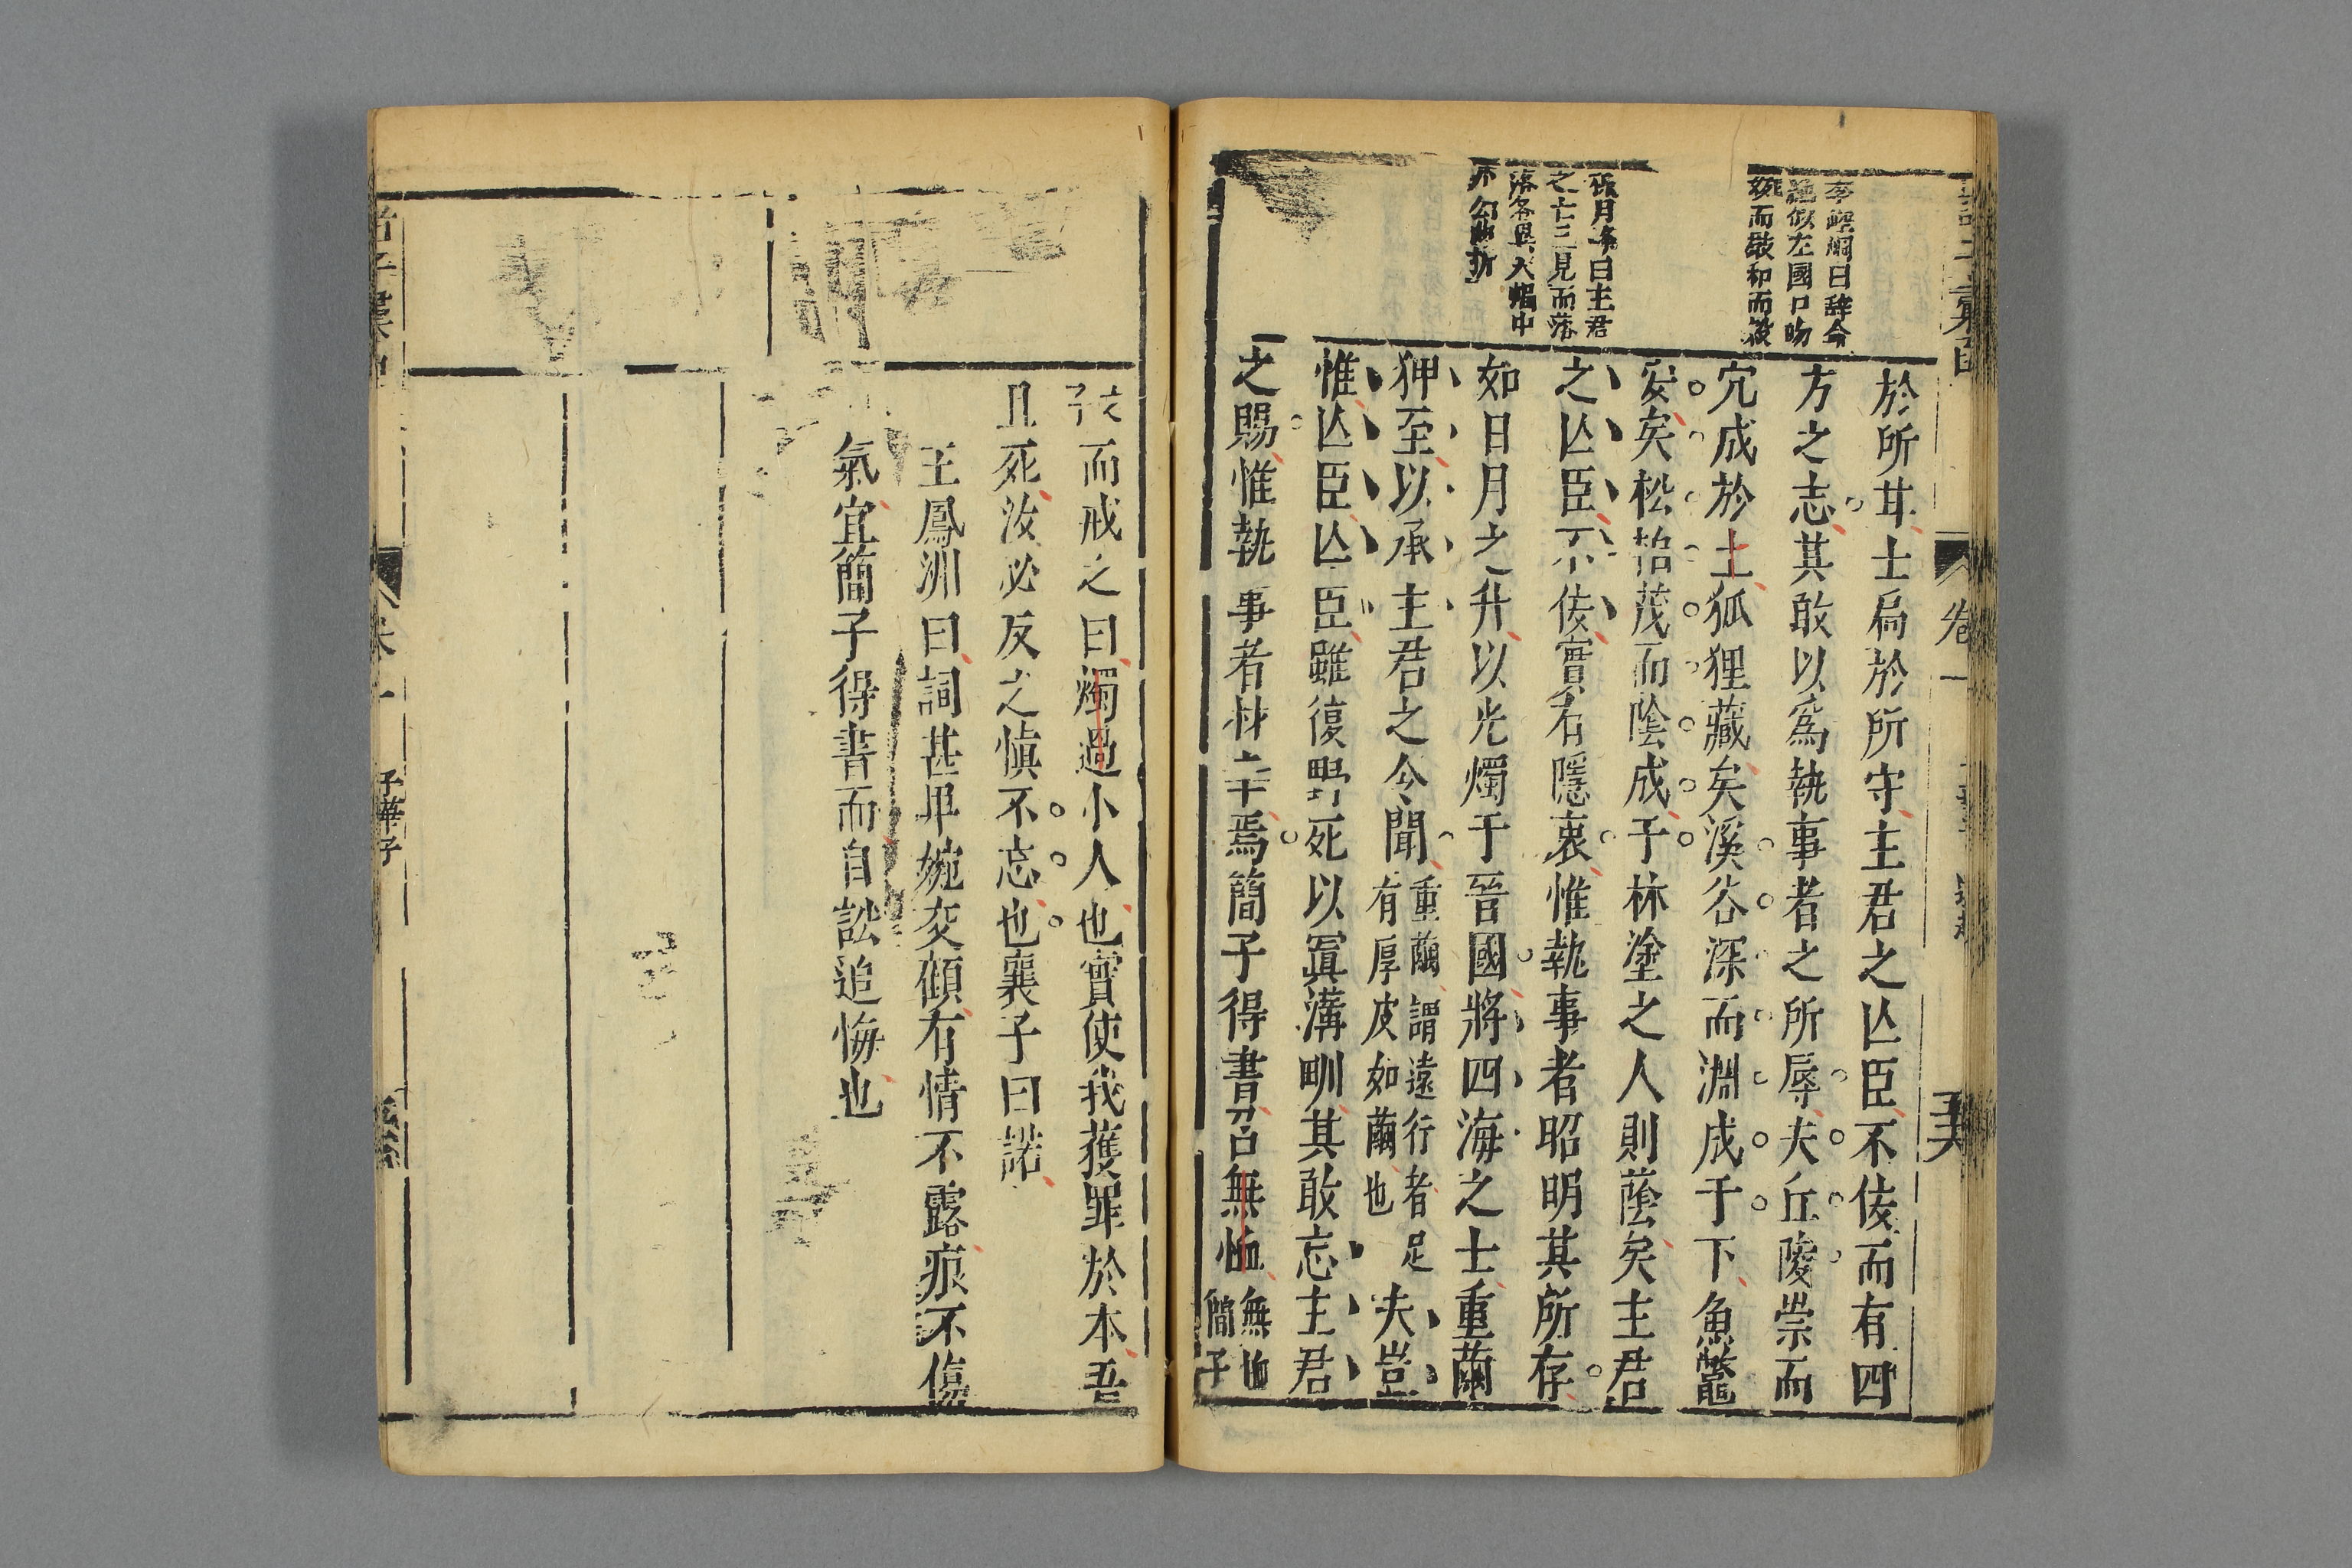 於所甘士扃於所守主君之亾臣不佞而有四
方之志其敢以爲執事者之所辱夫丘陵崇而
宂成於上狐狸藏矣溪谷深而淵成于下魚鼈
安矣松栢茂而陰成于林塗之人則蔭矣主君
之亾臣不佞實右隱衷惟執事者昭明其所存
如日月之升以光燭于晉國將四海之士重繭
狎至以承主君之令聞
重繭謂遠行者足
有厚皮如繭也
夫豈
惟亾臣亾臣雖復野死以寘溝甽其敢忘主君
之賜惟執事者枿焉簡子得書召無恤
無恤
簡子
絶似左國口吻
婉而
張月峯曰主君
之亡三見而落
落各異
子
卷一
而戒之曰燭過小人也實使我獲罪於本吾
且死汝必反之愼不忘也襄子曰諾
王鳳洲曰詞甚卑婉交頗有情不露痕不傷
氣宜簡子得書而自訟追悔也
子華子